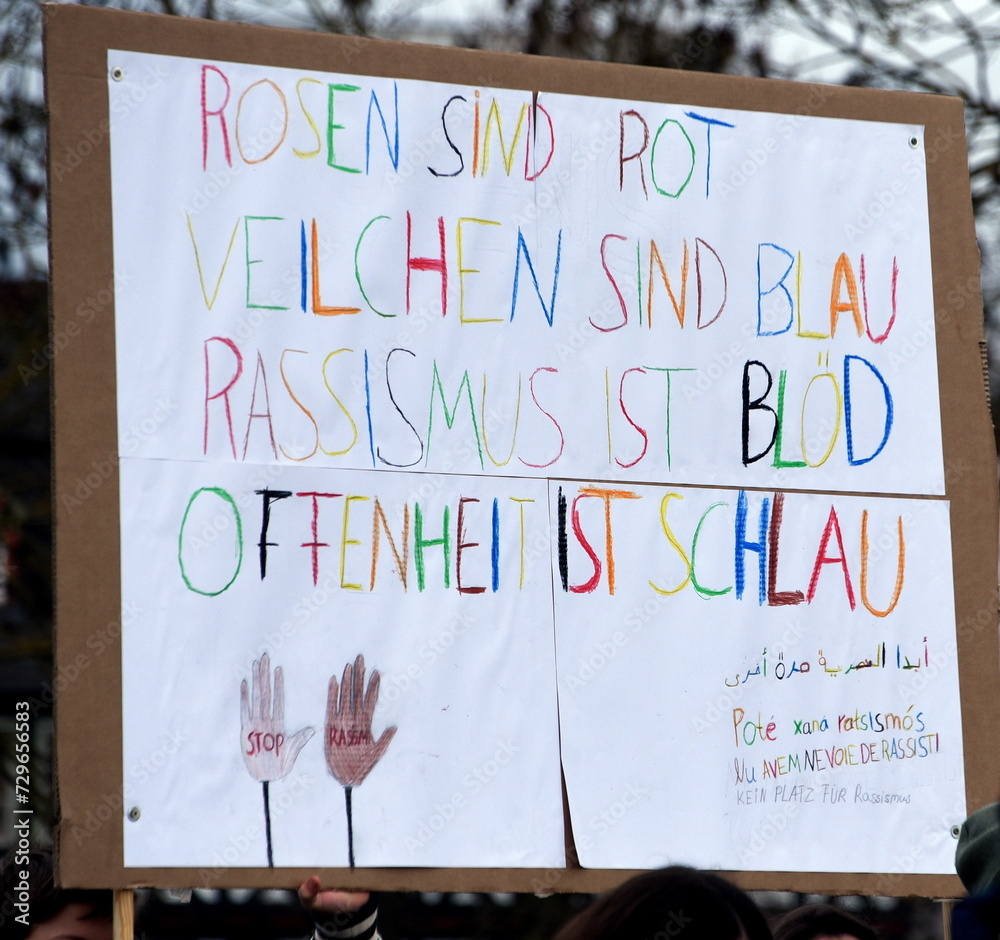 ROSEN SIND ROT
VEILCHEN SIND BLAU
RASSISMUS IST BLÖD
OFFENHEIT IST SCHLAU
أبدا العصرية مرة أخرى
Poté xana ratsismós
Nu AVEM NEVOIE DE RASSISTI
KEIN PLATZ FÜR Rassismus
STOP
RASSM
Adobe Stock | #729656583